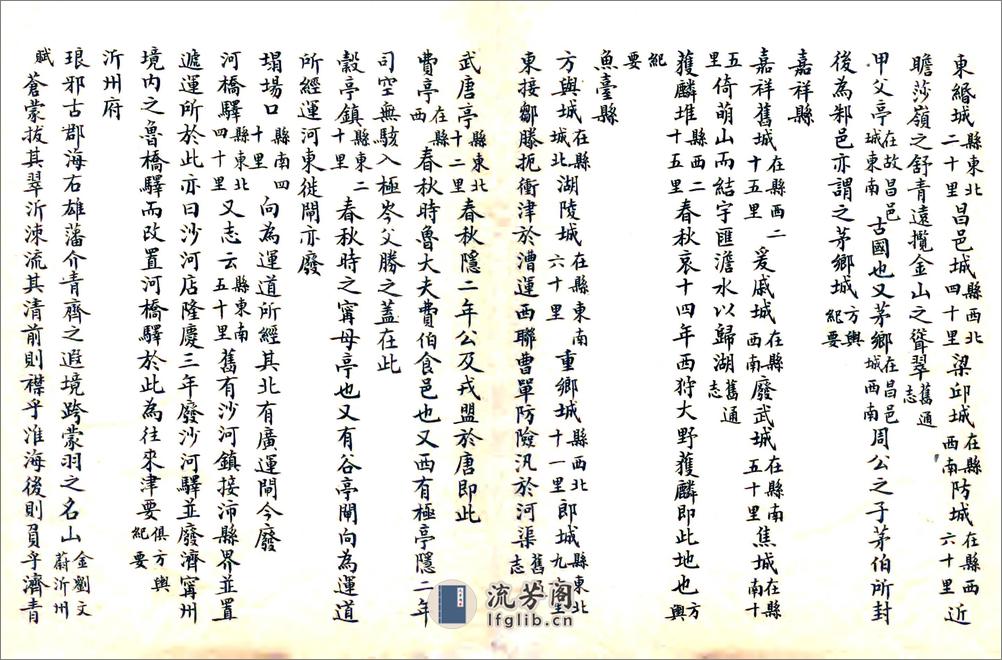 東緡城縣東北二十里昌邑城縣西北四十里梁邱城在縣西南防城在縣西六十里近
瞻莎嶺之舒青遠攬金山之聳翠舊通志
甲父亭在故昌邑城東南古國也又茅鄉在昌邑城西南周公之子茅伯所封
後為邾邑亦謂之茅鄉城方輿紀要
嘉祥縣
嘉祥舊城在縣西二十五里爰戚城在縣西南廢武城在縣南五十里焦城在縣南十
五里倚萌山而結宇匯澹水以歸湖舊通志
獲麟堆縣西二十五里春秋哀十四年西狩大野獲麟即此地也方輿
紀要
魚臺縣
方與城在縣城北湖陵城在縣東南六十里重鄉城縣西北十一里郎城縣東北九十里
東接鄒滕扼衝津於漕運西聯曹單防險汎於河渠舊通志
武唐亭縣東北十二里春秋隱二年公及戎盟於唐即此
費亭在縣西春秋時魯大夫費伯食邑也又西有極亭隱二年
司空無駭入極岑父勝之蓋在此
穀亭鎮縣東二十里春秋時之寗母亭也又有谷亭閘向為運道
所經運河東徙閘亦廢
塌場口縣南四十里向為運道所經其北有廣運閘今廢
河橋驛縣東北四十里又志云縣東南五十里舊有沙河鎮接沛縣界並置
遞運所於此亦曰沙河店隆慶三年廢沙河驛並廢濟寗州
境內之魯橋驛而改置河橋驛於此為往來津要俱方輿紀要
沂州府
琅邪古郡海右雄藩介青齊之遐境跨蒙羽之名山金劉文蔚沂州
賦蒼蒙拔其翠沂涑流其清前則襟乎淮海後則負乎濟青
流芳阁
lfglib.cn